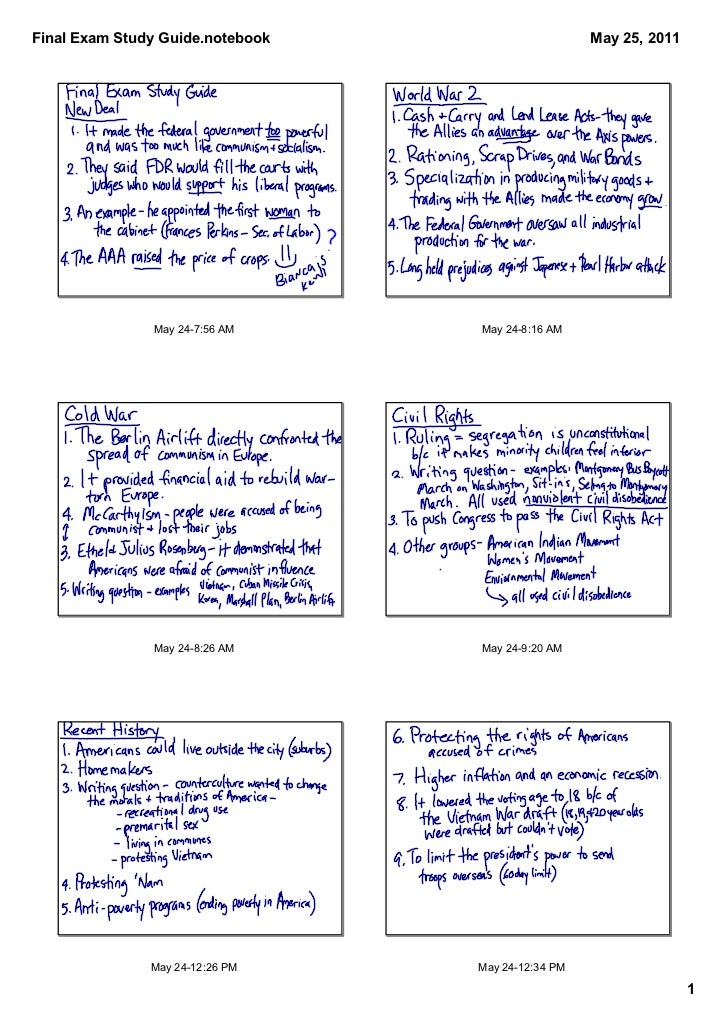 Final Exam Study Guide.notebook
May 25, 2011
Final Exam Study Guide
New Deal
1. It made the federal government too powerful
and was too much like communism + socialism.
2. They said FDR would fill the courts with
judges who would support his liberal programs.
3. An example - he appointed the first woman to
the cabinet (Frances Perkins - Sec. of Labor) ?
4. The AAA raised the price of crops.
Bianca is
May 24-7:56 AM
World War 2
1. Cash + Carry and Lend Lease Acts - they gave
the Allies an advantage over the Axis powers.
2. Rationing, Scrap Drives, and War Bonds
3. Specialization in producing military goods +
trading with the Allies made the economy grow.
4. The Federal Government oversaw all industrial
production for the war.
5. Long held prejudices against Japanese + Pearl Harbor attack
May 24-8:16 AM
Cold War
1. The Berlin Airlift directly confronted the
spread of communism in Europe.
2. It provided financial aid to rebuild war-
torn Europe.
4. McCarthyism - people were accused of being
communist + lost their jobs
3. Ethel + Julius Rosenberg - it demonstrated that
Americans were afraid of communist influence
5. Writing question - examples Vietnam, Cuban Missile Crisis,
Korea, Marshall Plan, Berlin Airlift
May 24-8:26 AM
Civil Rights
1. Ruling = segregation is unconstitutional
b/c it makes minority children feel inferior
2. Writing question - examples: Montgomery Bus Boycott
March on Washington, Sit-in's, Selma to Montgomery
March. All used nonviolent civil disobedience
3. To push Congress to pass the Civil Rights Act
4. Other groups - American Indian Movement
Women's Movement
Environmental Movement
→ all used civil disobedience
May 24-9:20 AM
Recent History
1. Americans could live outside the city (suburbs)
2. Homemakers
3. Writing question - counterculture wanted to change
the morals + traditions of America -
- recreational drug use
- premarital sex
- living in communes
- protesting Vietnam
4. Protesting 'Nam
5. Anti-poverty programs (ending poverty in America)
May 24-12:26 PM
6. Protecting the rights of Americans
accused of crimes
7. Higher inflation and an economic recession.
8. It lowered the voting age to 18 b/c of
the Vietnam War draft (18, 19, + 20 year olds
were drafted but couldn't vote)
9. To limit the president's power to send
troops overseas (60 day limit)
May 24-12:34 PM
1